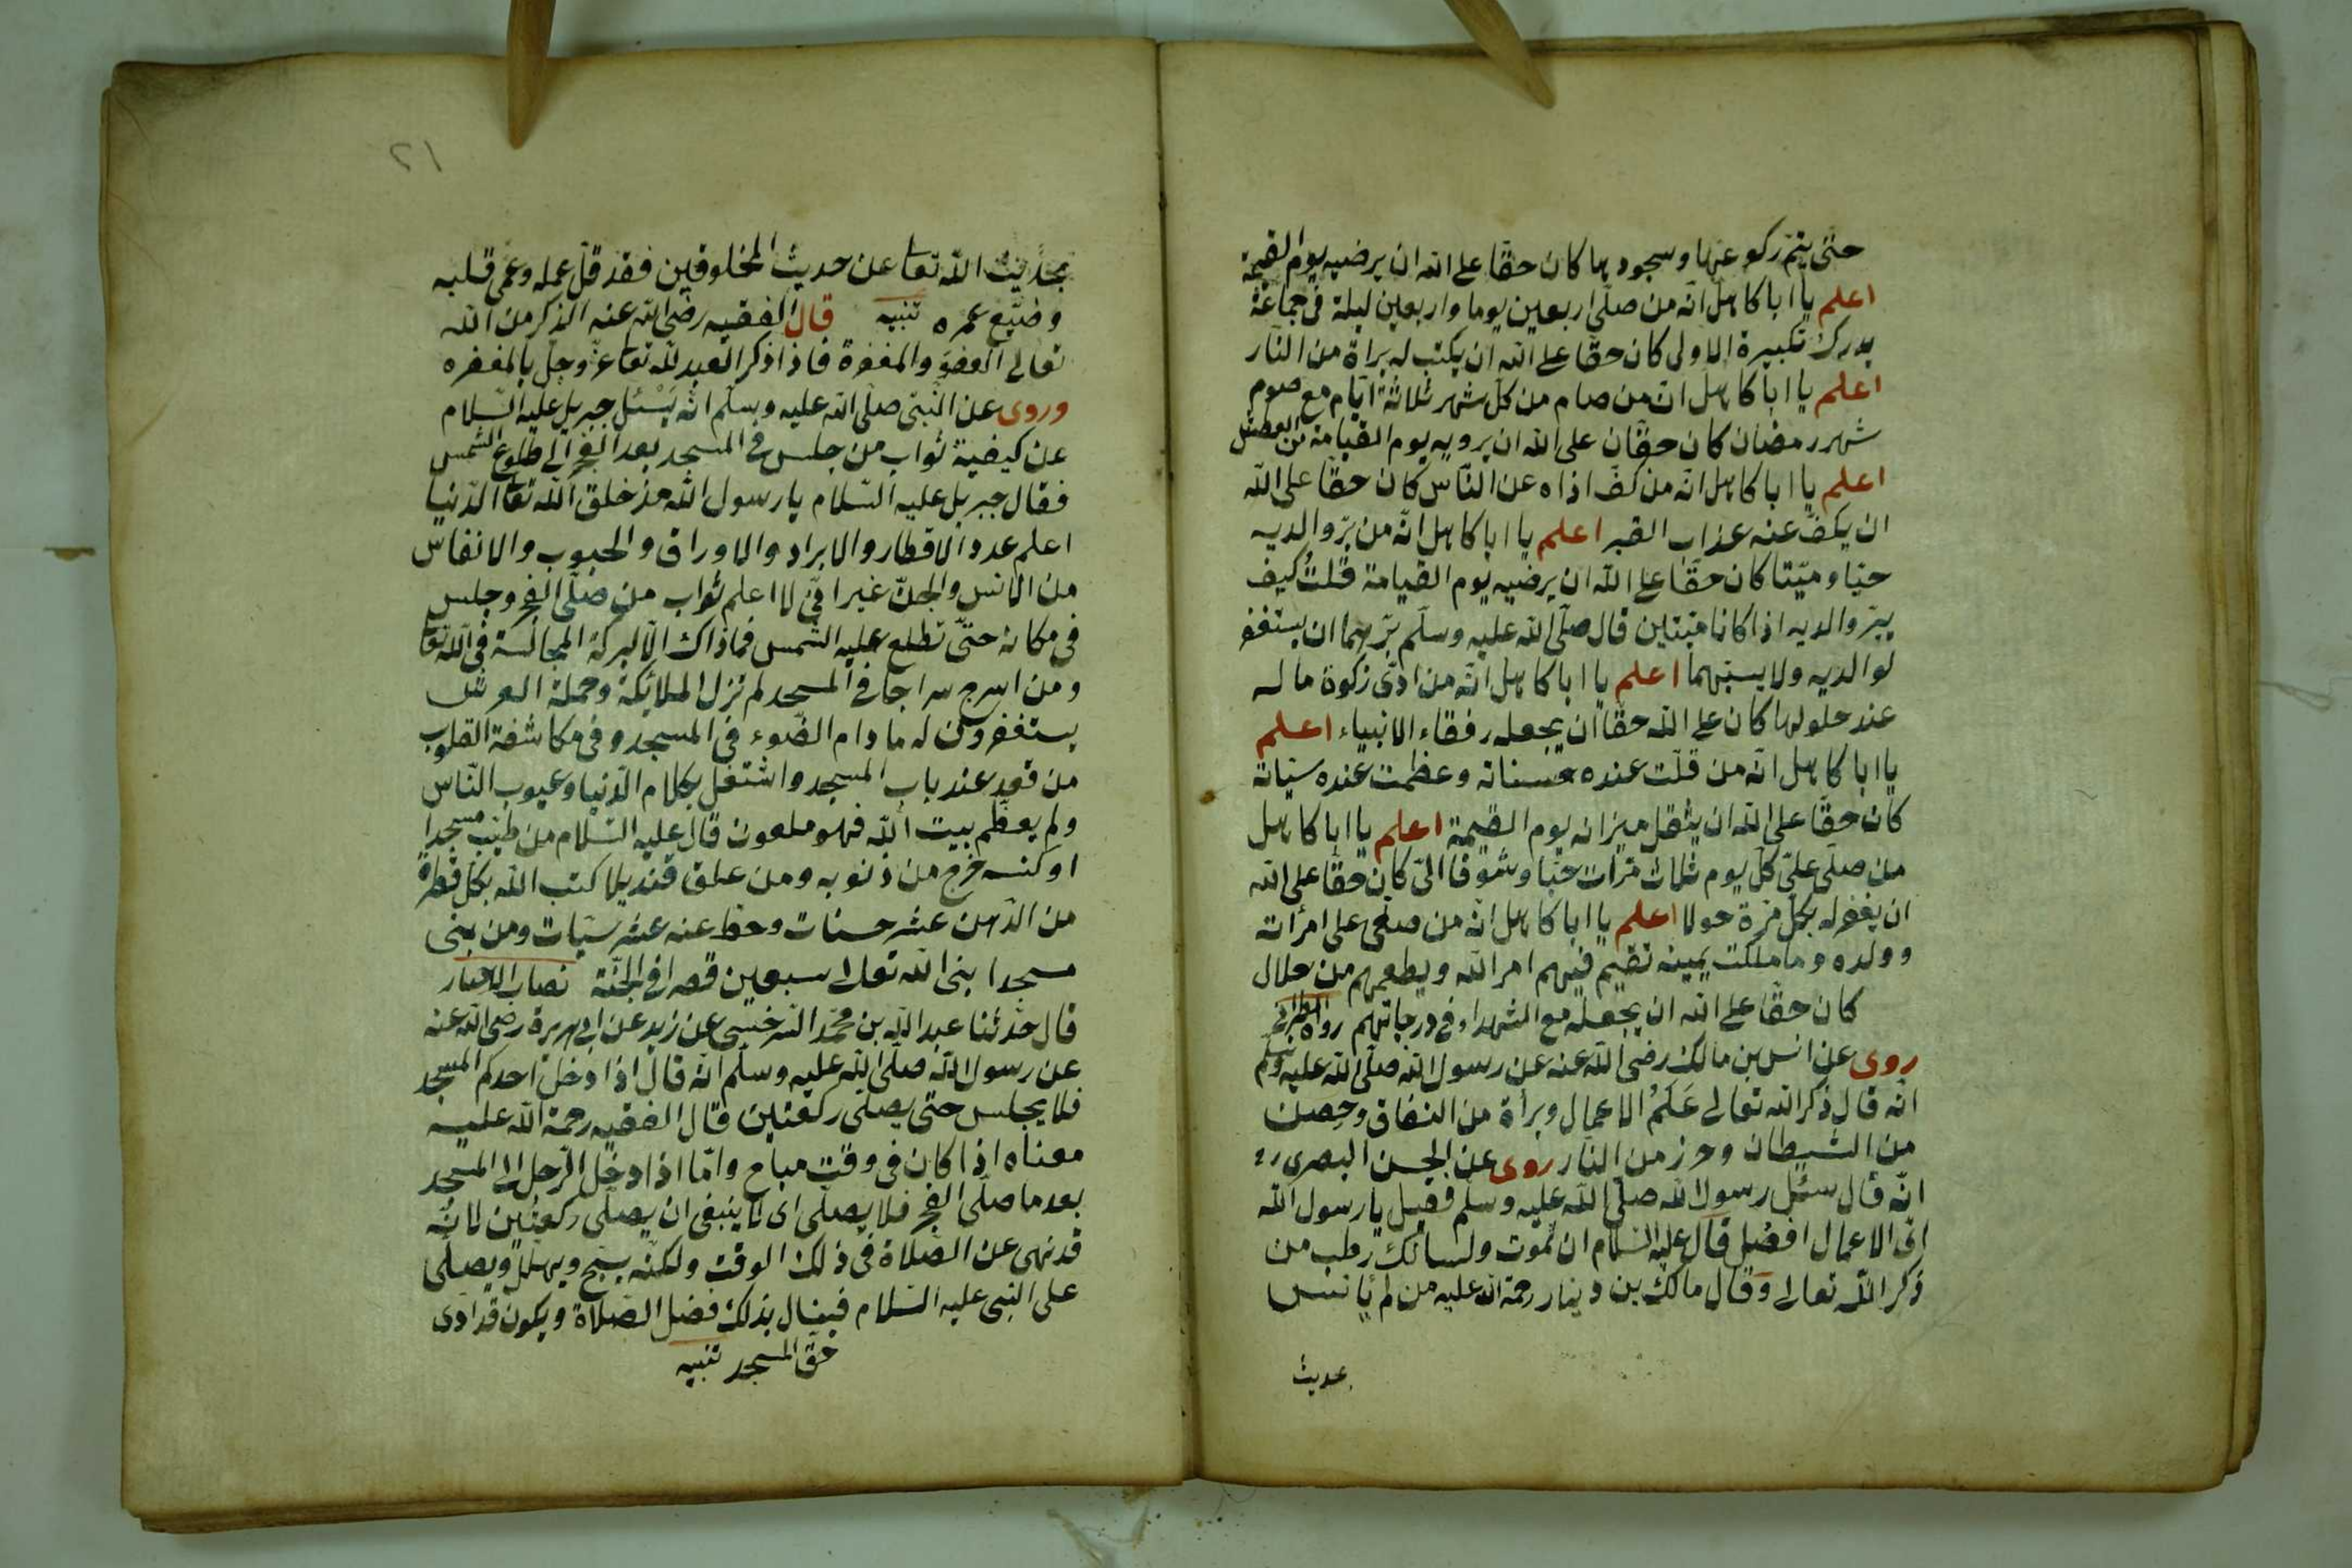 حتى يتم ركوعها وسجودها كان حقا على الله ان يرضيه يوم القيمة
اعلم يا ابا كاهل انه من صلى اربعين يوما واربعين ليلة في جماعة
يدرك تكبيرة الاولى كان حقا على الله ان يكتب له براة من النار
اعلم يا ابا كاهل ان من صام من كل شهر ثلاثة ايام مع صوم
شهر رمضان كان حقان على الله ان يرويه يوم القيامة من العطش
اعلم يا ابا كاهل انه من كف اذاه عن الناس كان حقا على الله
ان يكف عنه عذاب القبر اعلم يا ابا كاهل انه من بر والديه
حيا وميتا كان حقا على الله ان يرضيه يوم القيامة قلت كيف
يبر والديه اذا كانا ميتين قال صلى الله عليه وسلم برهما ان يستغفر
لوالديه ولا يسبهما اعلم يا ابا كاهل انه من ادى زكوة ماله
عند حلولها كان على الله حقا ان يجعله رفقاء الانبياء اعلم
يا ابا كاهل انه من قلت عنده حسناته وعظمت عنده سياته
كان حقا على الله ان يثقل ميزانه يوم القيمة اعلم يا ابا كاهل
من صلى على كل يوم ثلاث مرات حبا وشوقا الى كان حقا على الله
ان يغفر له بكل مرة حولا اعلم يا ابا كاهل انه من صلى على امرأته
وولده وما ملكت يمينه تقيم فيهم امر الله ويطعمهم من حلال
كان حقا على الله ان يجعله مع الشهداء في درجاتهم رواه الطبراني
روى عن انس بن مالك رضى الله عنه عن رسول الله صلى الله عليه وسلم
انه قال ذكر الله تعالى علم الاعمال وبرأة من النفاق وحصن
من الشيطان وحرز من النار روى عن الحسن البصرى رح
انه قال سئل رسول الله صلى الله عليه وسلم فقيل يا رسول الله
اى الاعمال افضل قال عليه السلام ان تموت ولسانك رطب من
ذكر الله تعالى وقال مالك بن دينار رحمة الله عليه من لم يأنس
بحديث
٢١
بحديث الله تعا عن حديث المخلوقين فقد قل عمله وعمى قلبه
وضيع عمره تنبيه قال الفقيه رضى الله عنه الذكر من الله
تعالى العفو والمغفرة فاذا ذكر العبد لله تعا عز وجل بالمغفره
وروى عن النبى صلى الله عليه وسلم انه يسئل جبريل عليه السلام
عن كيفية ثواب من جلس في المسجد بعد الفجر الى طلوع الشمس
فقال جبريل عليه السلام يا رسول الله مذ خلق الله تعا الدنيا
اعلم عدد الاقطار والابراد والاوراق والحبوب والانفاس
من الانس والجن غير انى لا اعلم ثواب من صلى الفجر وجلس
في مكانه حتى تطلع عليه الشمس فماذاك الا لبركة المجالسة في الله تعا
ومن اسرج سراجا في المسجد لم تزل الملائكة وحملة العرش
يستغفرون له ما دام الضوء في المسجد وفي مكاشفة القلوب
من قعد عند باب المسجد واشتغل بكلام الدنيا وعيوب الناس
ولم يعظم بيت الله فهو ملعون قال عليه السلام من طيب مسجدا
او كنسه خرج من ذنوبه ومن علق قنديلا كتب الله بكل قطرة
من الدهن عشر حسنات وحط عنه عشر سيات ومن بنى
مسجدا بنى الله تعالى سبعين قصرا في الجنة نصاب الاخبار
قال حدثنا عبد الله بن محمد السرخسى عن زيد عن ابى هريرة رضى الله عنه
عن رسول الله صلى الله عليه وسلم انه قال اذا دخل احدكم المسجد
فلا يجلس حتى يصلى ركعتين قال الفقيه رحمة الله عليه
معناه اذا كان في وقت مباح واما اذا دخل الرجل الى المسجد
بعد ما صلى الفجر فلا يصلى اى لا ينبغى ان يصلى ركعتين لانه
قد نهى عن الصلاة في ذلك الوقت ولكنه يسبح ويهلل ويصلى
على النبى عليه السلام فينال بذلك فضل الصلاة ويكون قد ادى
حق المسجد تنبيه